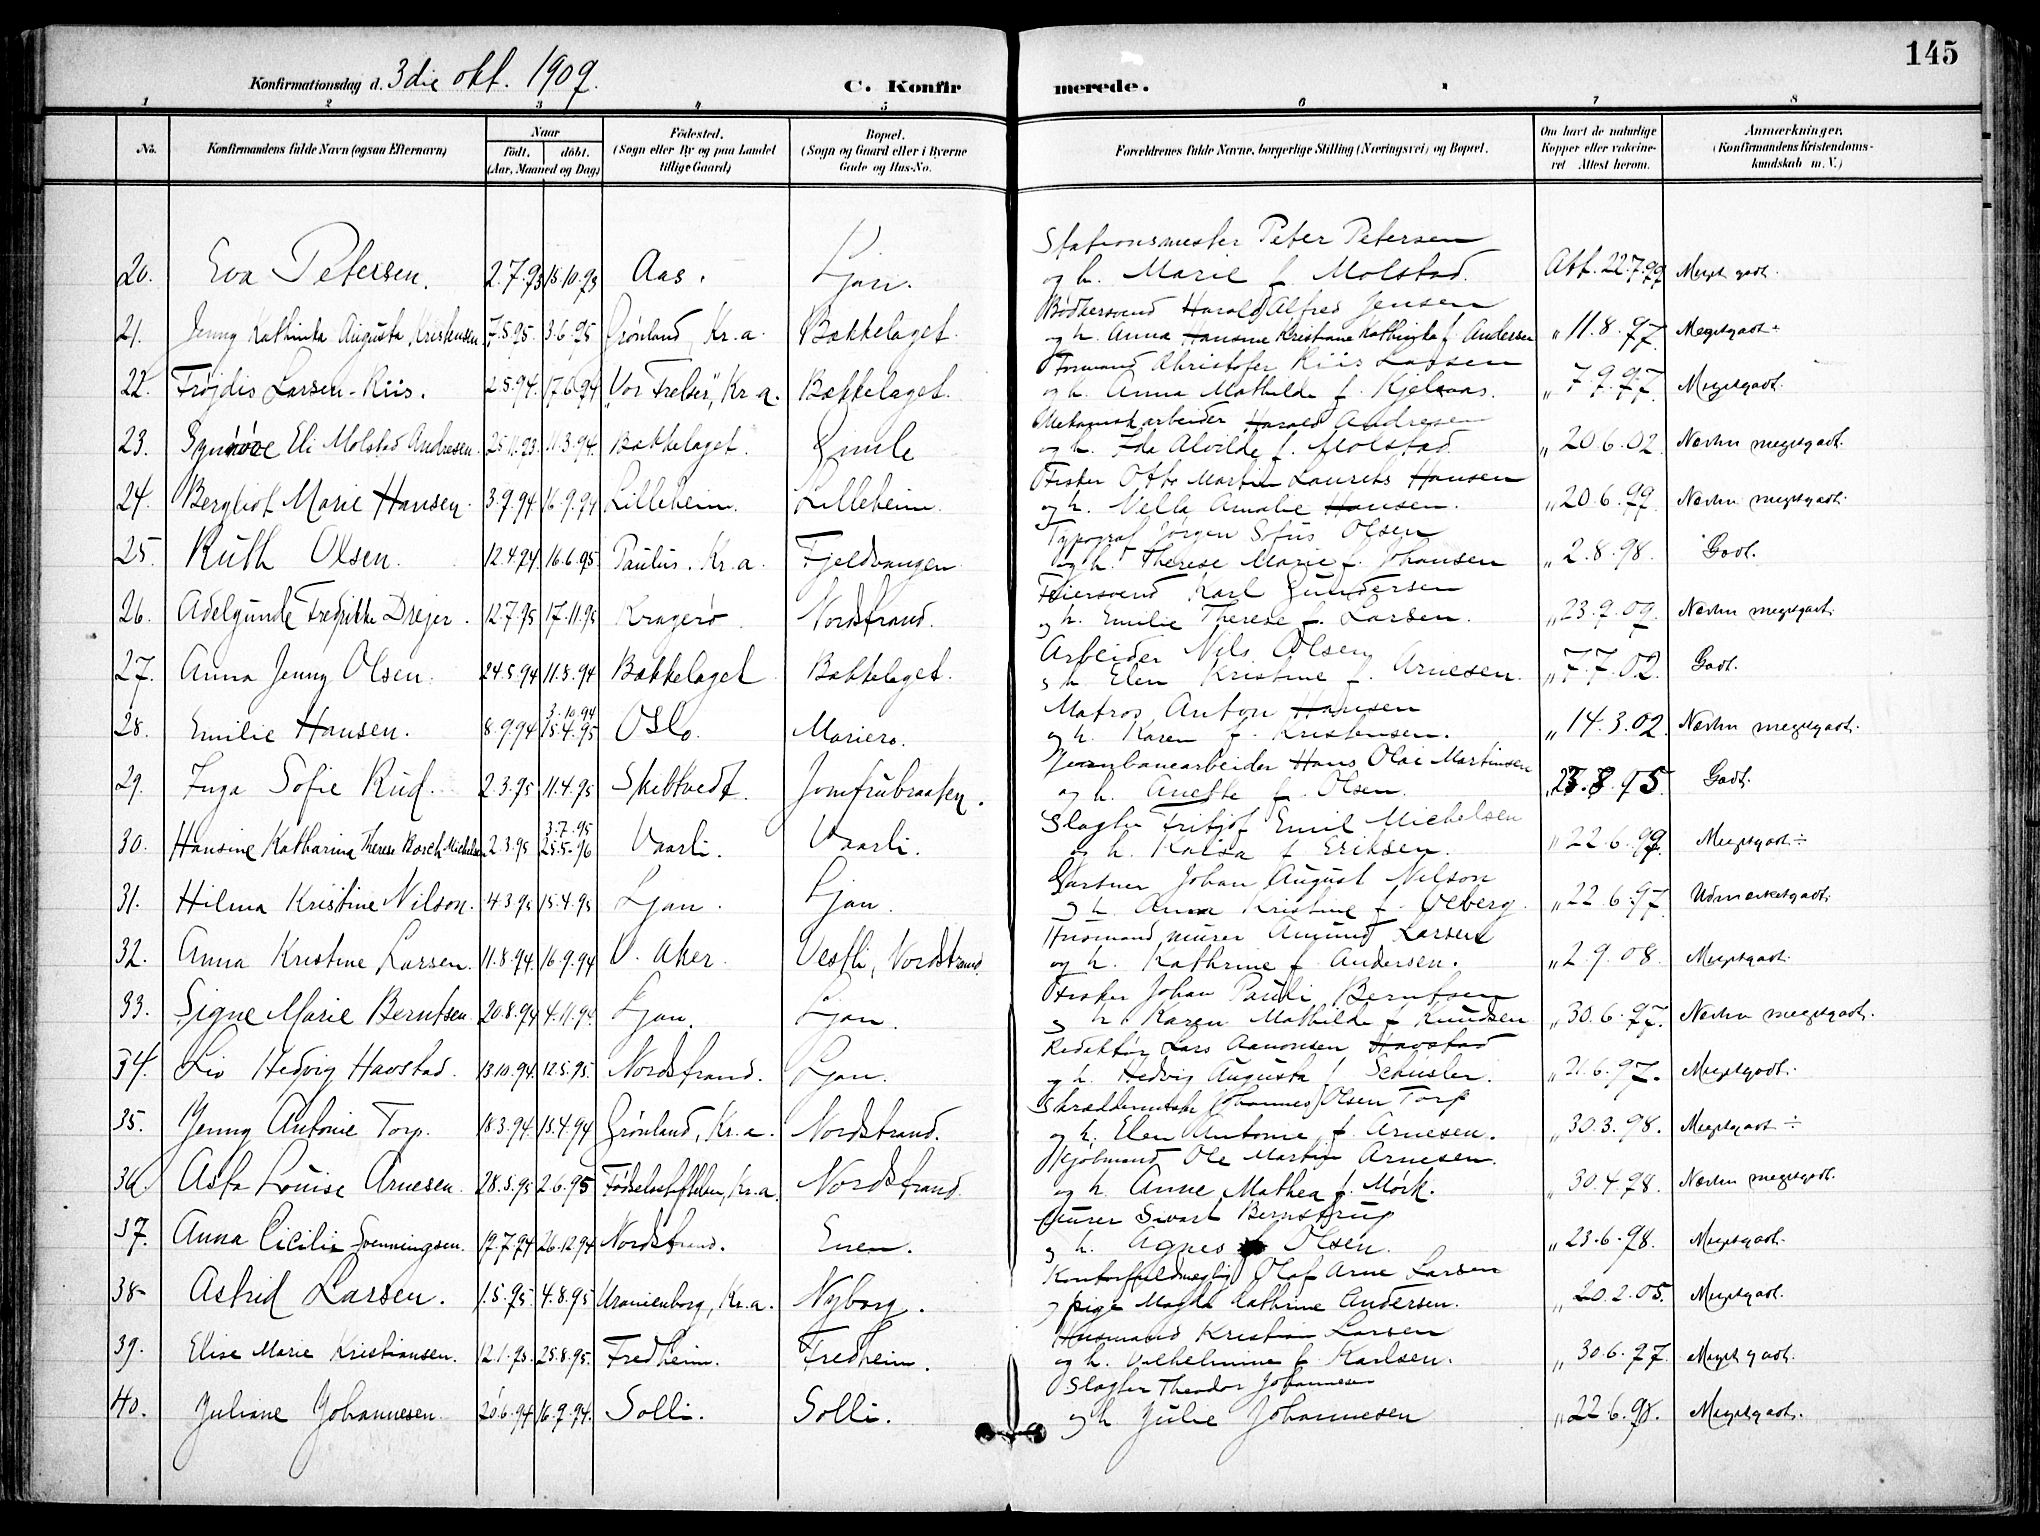 145
Konfirmationsdag d. 3die okt. 1909.
C. Konfirmerede.
1 2 3 4 5 6 7 8
No. Konfirmandens fulde Navn (ogsaa Efternavn) Naar født. døbt. (Aar, Maaned og Dag) Fødested. (Sogn eller By og paa Landet tillige Gaard) Bopæl. (Sogn og Gaard eller i Byerne Gade og Hus-No. Forældrenes fulde Navne, borgerlige Stilling (Næringsvei) og Bopæl. Om havt de naturlige Kopper eller vakcineret Attest herom. Anmærkninger, (Konfirmandens Kristendomskundskab m. V.)
Stationsmester Peter Petersen
20. Eva Petersen. 2.7.93 15.10.93 Aas. Ljan. og h. Marie f. Molstad. Att. 22.7.99 Meget godt.
Bødkersvend Harald Alfred Jensen
21. Jenny Kathinka Augusta Kristensen 7.5.95. 3.6.95 Grønland, Kr.a. Bækkelaget. og h. Anna Hansine Kristiane Kathinka f. Andersen „ 11.8.97. Megetgodt ÷
Formand Christofer Riis Larsen
22. Frøjdis Larsen-Riis. 2.5.94. 17.6.94 "Vor Frelser", Kr.a. Bækkelaget. og h. Anna Mathilde f. Kjelsaas. „ 7.9.97. Megetgodt.
Mekanisk arbeider Harald Andresen
23. Synnøve Eli Molstad Andresen. 25.11.93. 11.3.94. Bækkelaget. Gimle og h. Ida Alvilde f. Molstad. „ 20.6.02. Næsten megetgodt.
Fisker Otto Martin Laurits Hansen
24. Bergliot Marie Hansen. 3.9.94 16.9.94 Lilleheim. Lilleheim. og h. Nella Amalie Hansen. „ 20.6.99. Næsten megetgodt.
Typograf Jørgen Sofus Olsen
25. Ruth Olsen. 12.4.94 16.6.95 Paulus. Kr.a. Fjeldvangen og h. Therese Marie f. Johansen „ 2.8.98. Godt.
Feiersvend Karl Gundersen
26. Adelgunde Fredrikke Drejer. 12.7.95 17.11.95 Kragerø Nordstrand. og h. Emilie Therese f. Larsen. „ 23.9.09. Næsten megetgodt.
Arbeider Nils Olsen
27. Anna Jenny Olsen. 24.5.94 11.8.94 Bækkelaget Bækkelaget. og h. Elen Kristine f. Arnesen. „ 7.7.02. Godt.
Matros Anton Hansen
28. Emilie Hansen. 8.9.94 3.10.94 15.4.95 Oslo. Mariero. og h. Karen f. Kristensen. „ 14.3.02. Næsten megetgodt.
Jernbanearbeider Hans Olai Martinsen
29. Inga Sofie Rud. 2.3.95 11.4.95 Skibtvedt. Jomfrubraaten. og h. Anette f. Olsen. Godt.
Slagter Fritjof Emil Michelsen
30. Hansine Katharina Therese Borch Michelsen 2.3.95 3.7.95 25.5.96 Vaarli. Vaarli. og h. Kaisa f. Eriksen. „ 22.6.99. Megetgodt ÷
Gartner Johan August Nilson
31. Hilma Kristine Nilson. 4.3.95 15.4.95 Ljan. Ljan. og h. Anna Kristine f. Veberg. „ 22.6.97. Udmerketgodt.
Husmand, murer Amund Larsen
32. Anna Kristine Larsen. 11.8.94. 16.9.94 V. Aker. Vestli, Nordstrand. og h. Kathrine f. Andersen. „ 2.9.08. Megetgodt.
Fisker Johan Pauli Berntsen
33. Signe Marie Berntsen. 20.8.94 4.11.94. Ljan. Ljan. og h. Karen Mathilde f. Knudsen „ 30.6.97. Næsten megetgodt.
Redaktør Lars Aanonsen Havstad
34. Liv Hedvig Havstad. 13.10.94. 12.5.95. Nordstrand. Ljan. og h. Hedvig Augusta f. Schusler. „ 21.6.97. Megetgodt.
Skræddermester Johannes Olsen Torp
35. Jenny Antonie Torp. 18.3.94. 15.4.94 Grønland, Kr.a. Nordstrand. og h. Elen Antonie f. Arnesen. „ 30.3.98. Megetgodt ÷
Kjøbmand Ole Martin Arnesen.
36. Asta Louise Arnesen. 28.3.95 2.6.95 Fødselsstiftelsen, Kr.a. Nordstrand. og h. Anne Mathea f. Mørk. „ 30.4.98. Næsten megetgodt.
Murer Sivart Bernstrup
37. Anna Cicilie Svenningsen. 19.7.94 26.12.94 Nordstrand. Enen. og h. Agnes f. Olsen. „ 23.6.98. Megetgodt.
Kontorfuldmægtig Olaf Arne Larsen
38. Astrid Larsen. 1.5.95. 4.8.95 Uranienborg, Kr.a. Nyborg. og pige Magda Kathrine Andersen. „ 20.2.05. Megetgodt.
Husmand Kristian Larsen
39. Elise Marie Kristiansen. 12.1.95. 25.8.95. Fredheim. Fredheim. og h. Vilhelmine f. Karlsen. „ 30.6.97. Meget godt.
Slagter Theodor Johannesen
40. Juliane Johannesen. 20.6.94 16.9.94. Solli. Solli. og h Julie Johannesen „ 22.6.98. Megetgodt.